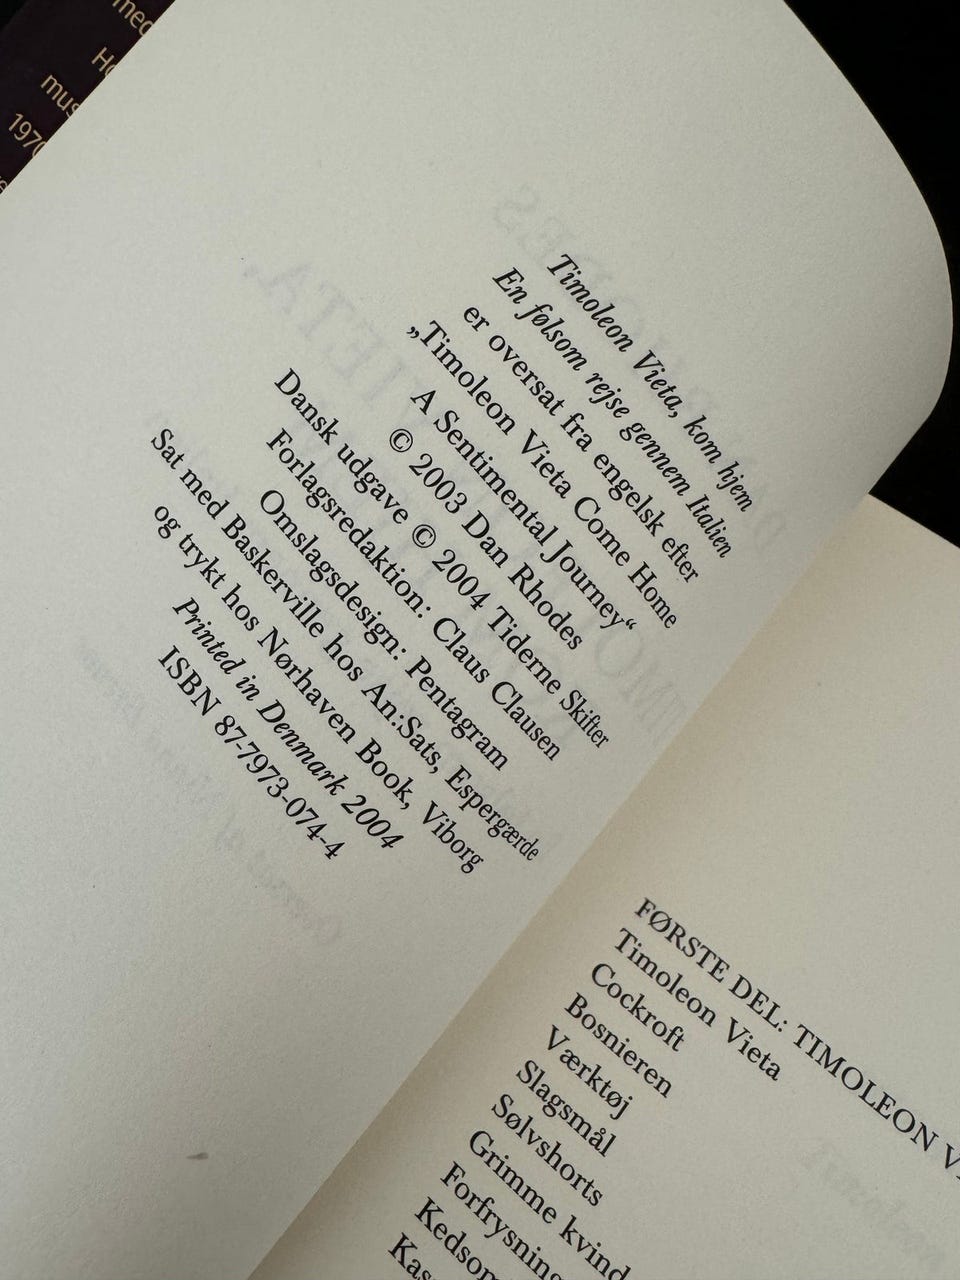 Timoleon Vieta, kom hjem
En følsom rejse gennem Italien
er oversat fra engelsk efter
„Timoleon Vieta Come Home
A Sentimental Journey“
© 2003 Dan Rhodes
Dansk udgave © 2004 Tiderne Skifter
Forlagsredaktion: Claus Clausen
Omslagsdesign: Pentagram
Sat med Baskerville hos An:Sats, Espergærde
og trykt hos Nørhaven Book, Viborg
Printed in Denmark 2004
ISBN 87-7973-074-4
FØRSTE DEL: TIMOLEON
Timoleon Vieta
Cockroft
Bosnieren
Værktøj
Slagsmål
Sølvshorts
Grimme kvind
Forfrysning
Kedsom
1970